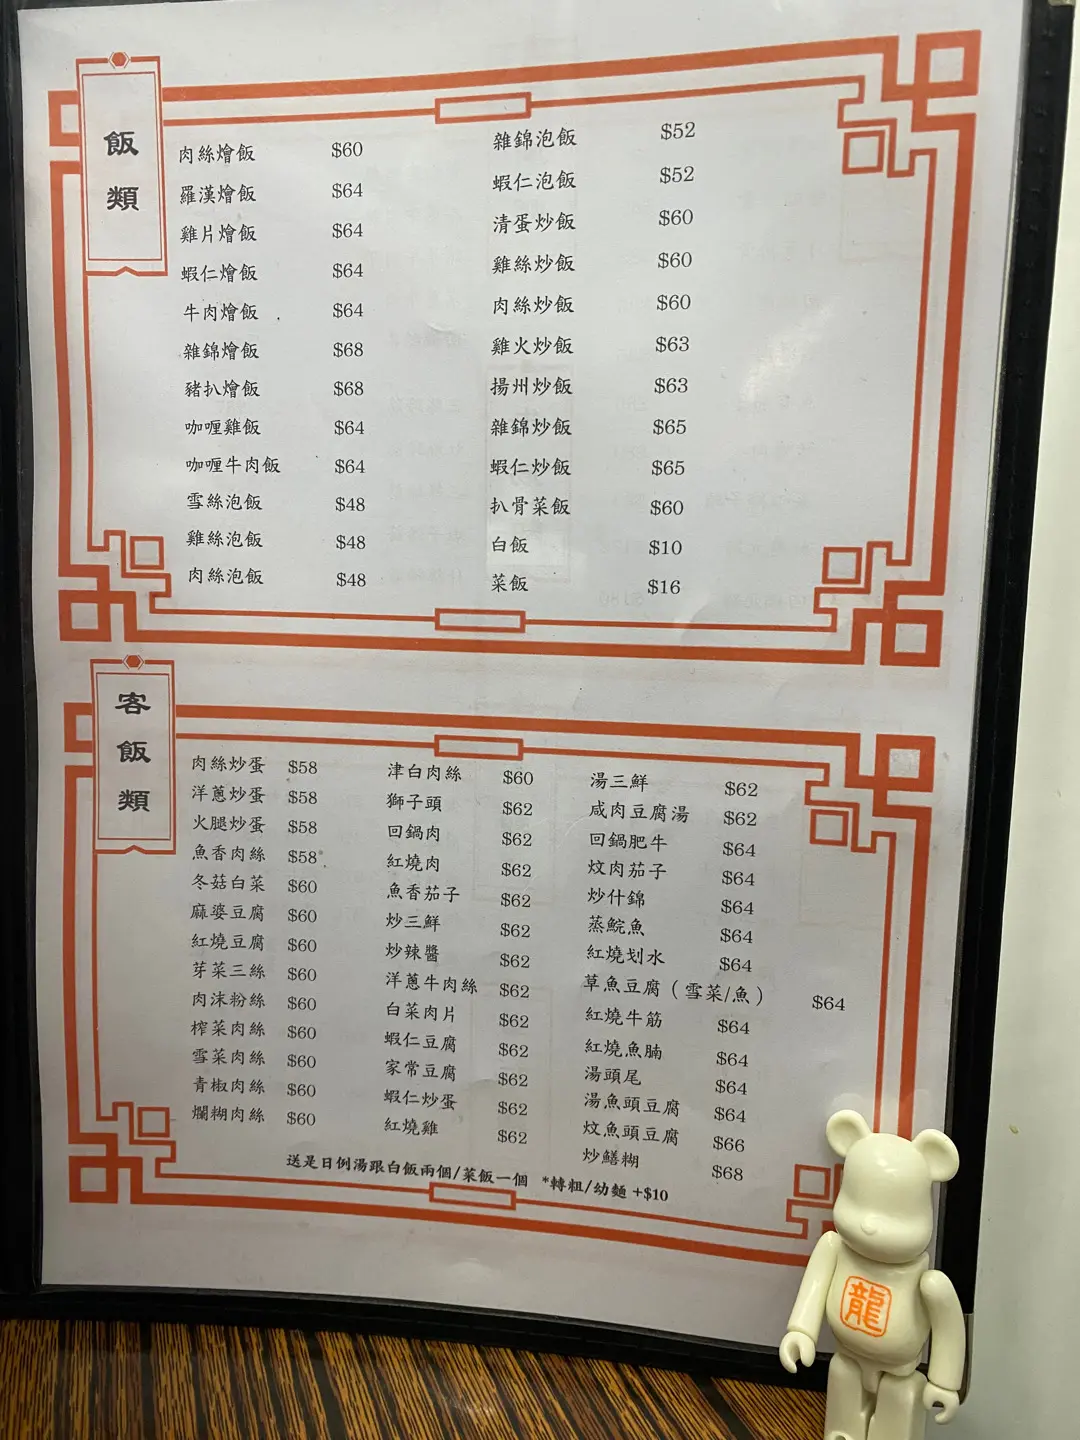 飯類
肉絲燴飯 $60
羅漢燴飯 $64
雞片燴飯 $64
蝦仁燴飯 $64
牛肉燴飯 $64
雜錦燴飯 $68
豬扒燴飯 $68
咖喱雞飯 $64
咖喱牛肉飯 $64
雪絲泡飯 $48
雞絲泡飯 $48
肉絲泡飯 $48
雜錦泡飯 $52
蝦仁泡飯 $52
清蛋炒飯 $60
雞絲炒飯 $60
肉絲炒飯 $60
雞火炒飯 $63
揚州炒飯 $63
雜錦炒飯 $65
蝦仁炒飯 $65
扒骨菜飯 $60
白飯 $10
菜飯 $16
客飯類
肉絲炒蛋 $58
洋蔥炒蛋 $58
火腿炒蛋 $58
魚香肉絲 $58
冬菇白菜 $60
麻婆豆腐 $60
紅燒豆腐 $60
芽菜三絲 $60
肉沫粉絲 $60
榨菜肉絲 $60
雪菜肉絲 $60
青椒肉絲 $60
爛糊肉絲 $60
津白肉絲 $60
獅子頭 $62
回鍋肉 $62
紅燒肉 $62
魚香茄子 $62
炒三鮮 $62
炒辣醬 $62
洋蔥牛肉絲 $62
白菜肉片 $62
蝦仁豆腐 $62
家常豆腐 $62
蝦仁炒蛋 $62
紅燒雞 $62
湯三鮮 $62
咸肉豆腐湯 $62
回鍋肥牛 $64
炆肉茄子 $64
炒什錦 $64
蒸鯇魚 $64
紅燒划水 $64
草魚豆腐（雪菜/魚） $64
紅燒牛筋 $64
紅燒魚腩 $64
湯頭尾 $64
湯魚頭豆腐 $64
炆魚頭豆腐 $66
炒鱔糊 $68
送是日例湯跟白飯兩個/菜飯一個 *轉粗/幼麵 +$10
龍